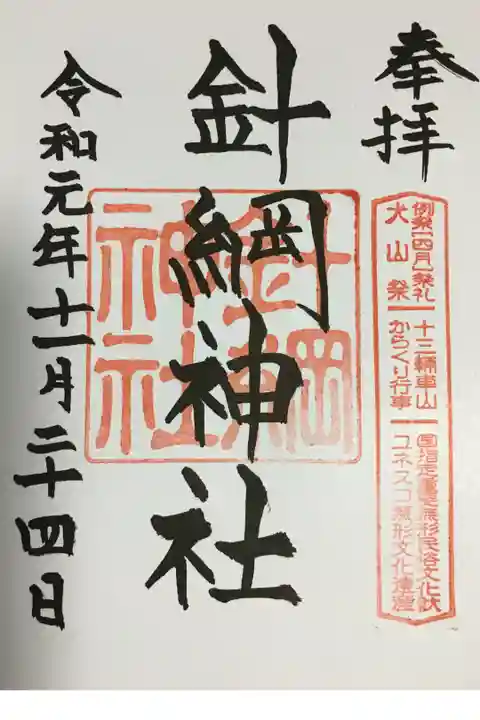 奉拝
例祭[四月]祭礼
犬山祭
十三輌車山
からくり行事
国指定重要無形民俗文化財
ユネスコ無形文化遺産
針綱神社
針綱
神社
令和元年十一月二十四日